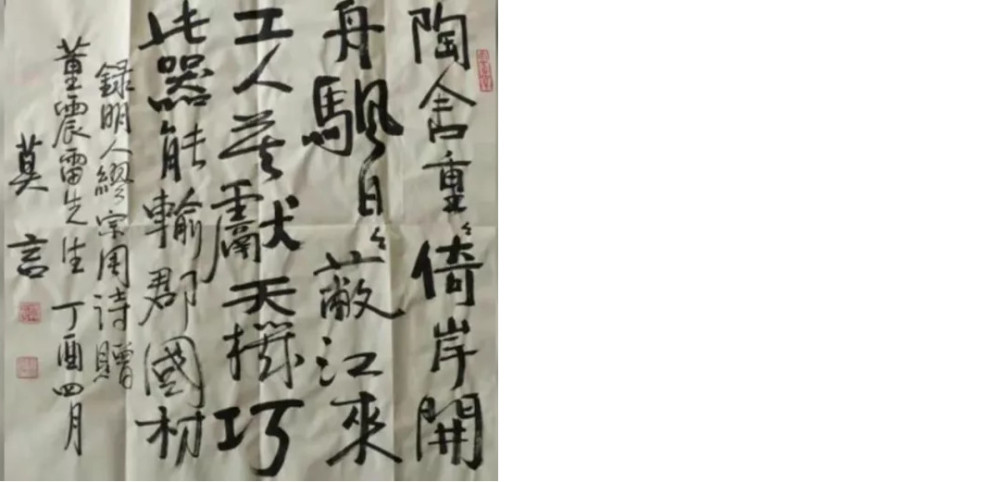 陶舍重々倚岸開
舟颿日々蔽江來
工人莫獻天機巧
此器能輸郡國材
録明人繆宗周詩贈
董震雷先生 丁酉四月
莫言